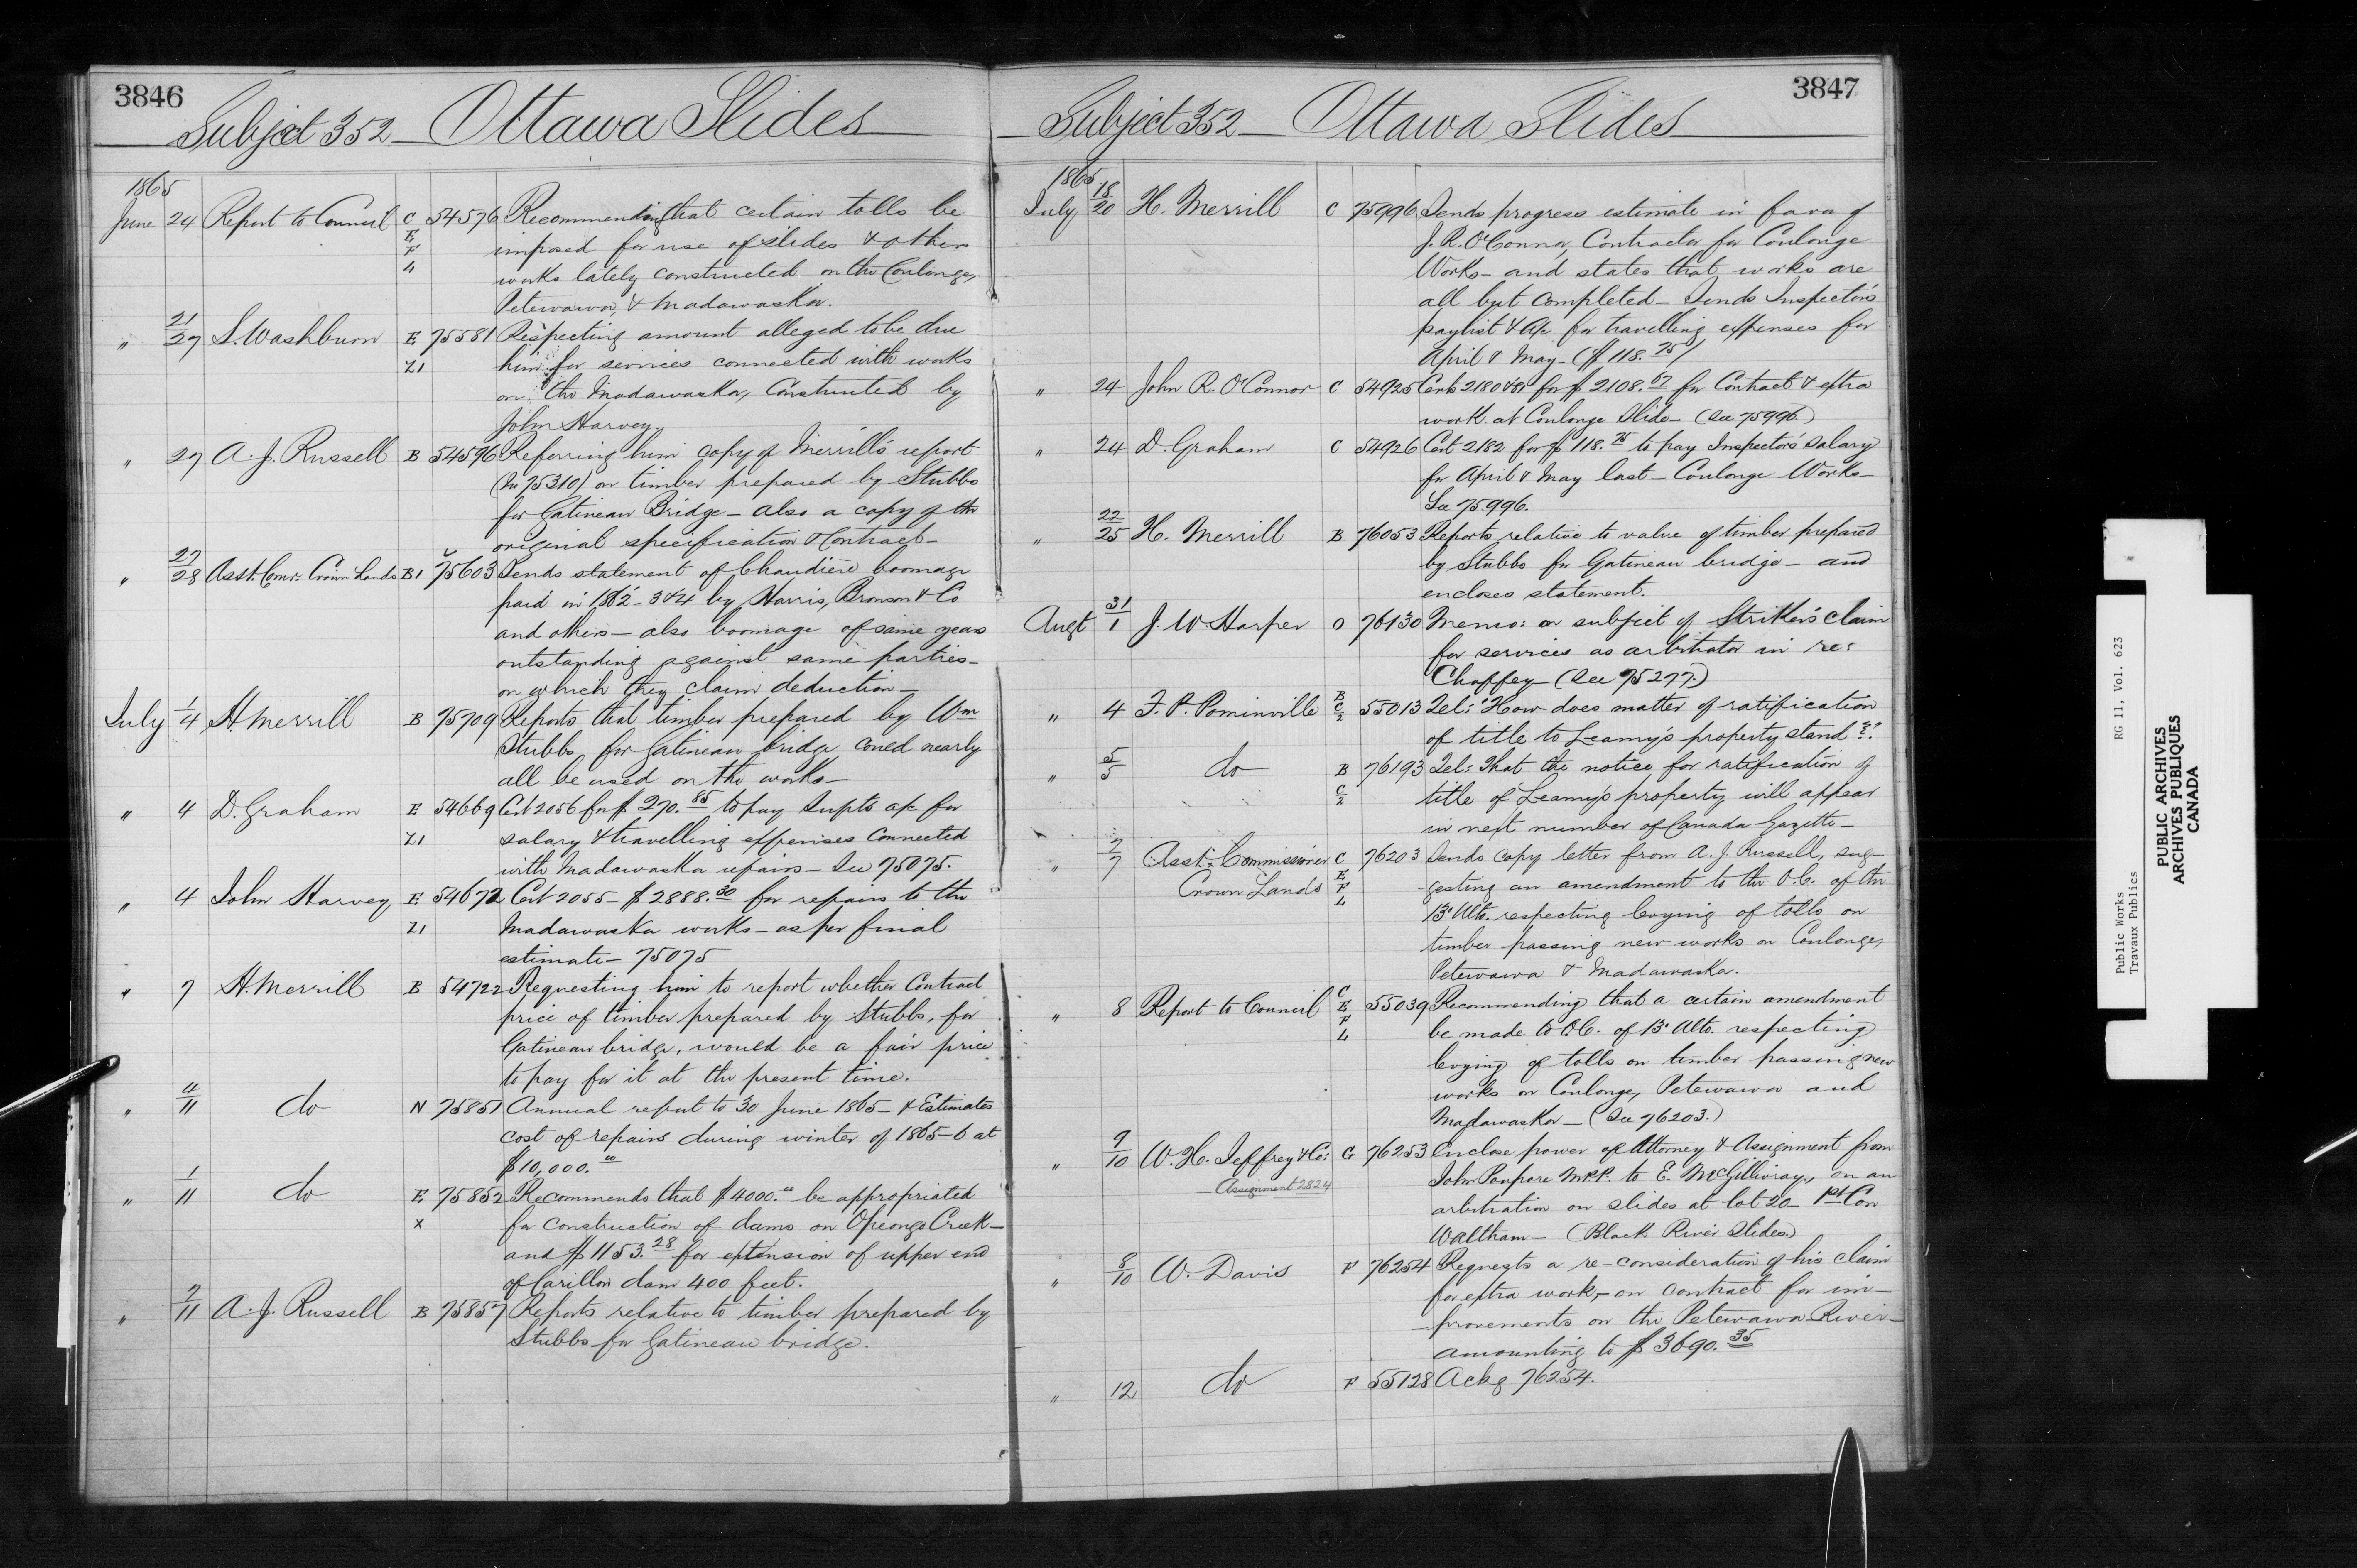 3846
Subject 352 — Ottawa Slides
1865
June 24 Report to Council C 54576 Recommending that certain tolls be
E imposed for use of slides & other
F works lately constructed on the Coulonge,
4 Petewawa, & Madawaska.
" 21/27 S. Washburn E 75581 Respecting amount alleged to be due
Z1 him for services connected with works
on the Madawaska, Constructed by
John Harvey
" 27 A. J. Russell B 54596 Referring him copy of Merrill's report
(No 75310) on timber prepared by Stubbs
for Gatineau Bridge — also a copy of the
original specification & Contract —
" 27/28 Asst. Comr. Crown Lands B1 75603 Sends statement of Chaudière boomage
paid in 1862-3 & 4 by Harris, Bronson & Co
and others — also boomage of same years
outstanding against same parties —
on which they claim deduction —
July 1/4 H. Merrill B 75709 Reports that timber prepared by Wm
Stubbs, for Gatineau bridge could nearly
all be used on the works —
" 4 D. Graham E 54669 Cert 2056 for $270.85 to pay Supts a/c for
Z1 salary & travelling expenses connected
with Madawaska repairs — See 75075.
" 4 John Harvey E 54672 Cert 2055 — $2888.30 for repairs to the
Z1 Madawaska works — as per final
estimate — 75075
" 7 H. Merrill B 54722 Requesting him to report whether Contract
price of timber prepared by Stubbs, for
Gatineau bridge, would be a fair price
to pay for it at the present time.
" 4/11 do N 75851 Annual report to 30 June 1865 — & Estimates
cost of repairs during winter of 1865-6 at
$10,000.00
" 1/11 do E 75852 Recommends that $4000.00 be appropriated
X for construction of dams on Opeongo Creek —
and $1153.28 for extension of upper end
of Carillon dam 400 feet.
" 7/11 A. J. Russell B 75857 Reports relative to timber prepared by
Stubbs for Gatineau bridge.
3847
Subject 352 — Ottawa Slides
1865
July 18/20 H. Merrill C 75996 Sends progress estimate in favor of
J. R. O'Connor, Contractor for Coulonge
Works — and states that works are
all but completed — Sends Inspector's
paylist & a/c for travelling expenses for
April & May — ($118.75)
" 24 John R. O'Connor C 54925 Certs 2180 & 81 for $2108.67 for Contract & extra
work at Coulonge Slide — (See 75996.)
" 24 D. Graham C 54926 Cert 2182 for $118.75 to pay Inspectors' salary
for April & May last — Coulonge Works —
See 75.996.
" 22/25 H. Merrill B 76053 Reports relative to value of timber prepared
by Stubbs for Gatineau bridge — and
encloses statement.
Augt 31/1 J. W. Harper O 76130 Memo: on subject of Striker's claim
for services as arbitrator in re:
Chaffey — (See 75277.)
" 4 F. P. Pominville B C/2 55013 Tel: "How does matter of ratification
of title to Leamy's property stand"?
" 5/5 do B 76193 Tel: That the notice for ratification of
C/2 title of Leamy's property will appear
in next number of Canada Gazette —
" 7/7 Asst. Commissioner C 76203 Sends copy letter from A. J. Russell, sug-
Crown Lands E gesting an amendment to the O.C. of the
F L 13' Ulto. respecting levying of tolls on
timber passing new works on Coulonge,
Petewawa & Madawaska.
" 8 Report to Council C E 55039 Recommending that a certain amendment
F be made to O.C. of 13' Ulto. respecting
L levying of tolls on timber passing new
works on Coulonge, Petewawa and
Madawaska — (See 76203.)
" 9/10 W. H. Jeffrey & Co: G 76253 Enclose power of Attorney & Assignment from
Assignment 2824 John Poupore M.P.P. to E. McGillivray, on an
arbitration on slides at lot 20 — 1st Con
Waltham — (Black River Slides)
" 8/10 W. Davis F 76254 Requests a re-consideration of his claim
for extra work, on contract for im-
provements on the Petewawa River —
amounting to $3690.35
" 12 do F 55128 Ackg 76254.
Public Works
Travaux Publics
RG 11, Vol. 623
PUBLIC ARCHIVES
ARCHIVES PUBLIQUES
CANADA